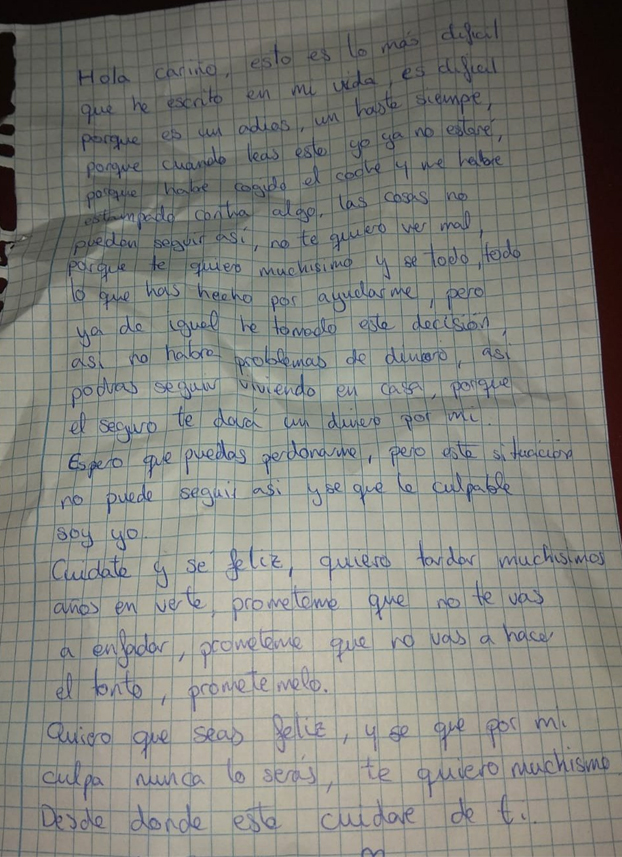 Hola cariño, esto es lo más dificil
que he escrito en mi vida, es dificil
porque es un adios, un hasta siempre,
porque cuando leas esto yo ya no estaré,
porque habe cogido el coche y me habre
estampado contra algo, las cosas no
pueden seguir asi, no te quiero ver mal,
porque te quiero muchisimo y se todo, todo
lo que has hecho por ayudarme, pero
ya da igual he tomado esta decisión,
asi no habra problemas de dinero, asi
podras seguir viviendo en casa, porque
el seguro te dará un dinero por mi.
Espero que puedas perdonarme, pero esta situación
no puede seguir asi y se que la culpable
soy yo.
Cuidate y sé feliz, quiero tardar muchisimos
años en verte, prometeme que no te vas
a enfadar, prometeme que no vas a hacer
el tonto, prometemelo.
Quiero que seas feliz, y se que por mi
culpa nunca lo serás, te quiero muchisimo
Desde donde este cuidare de ti.